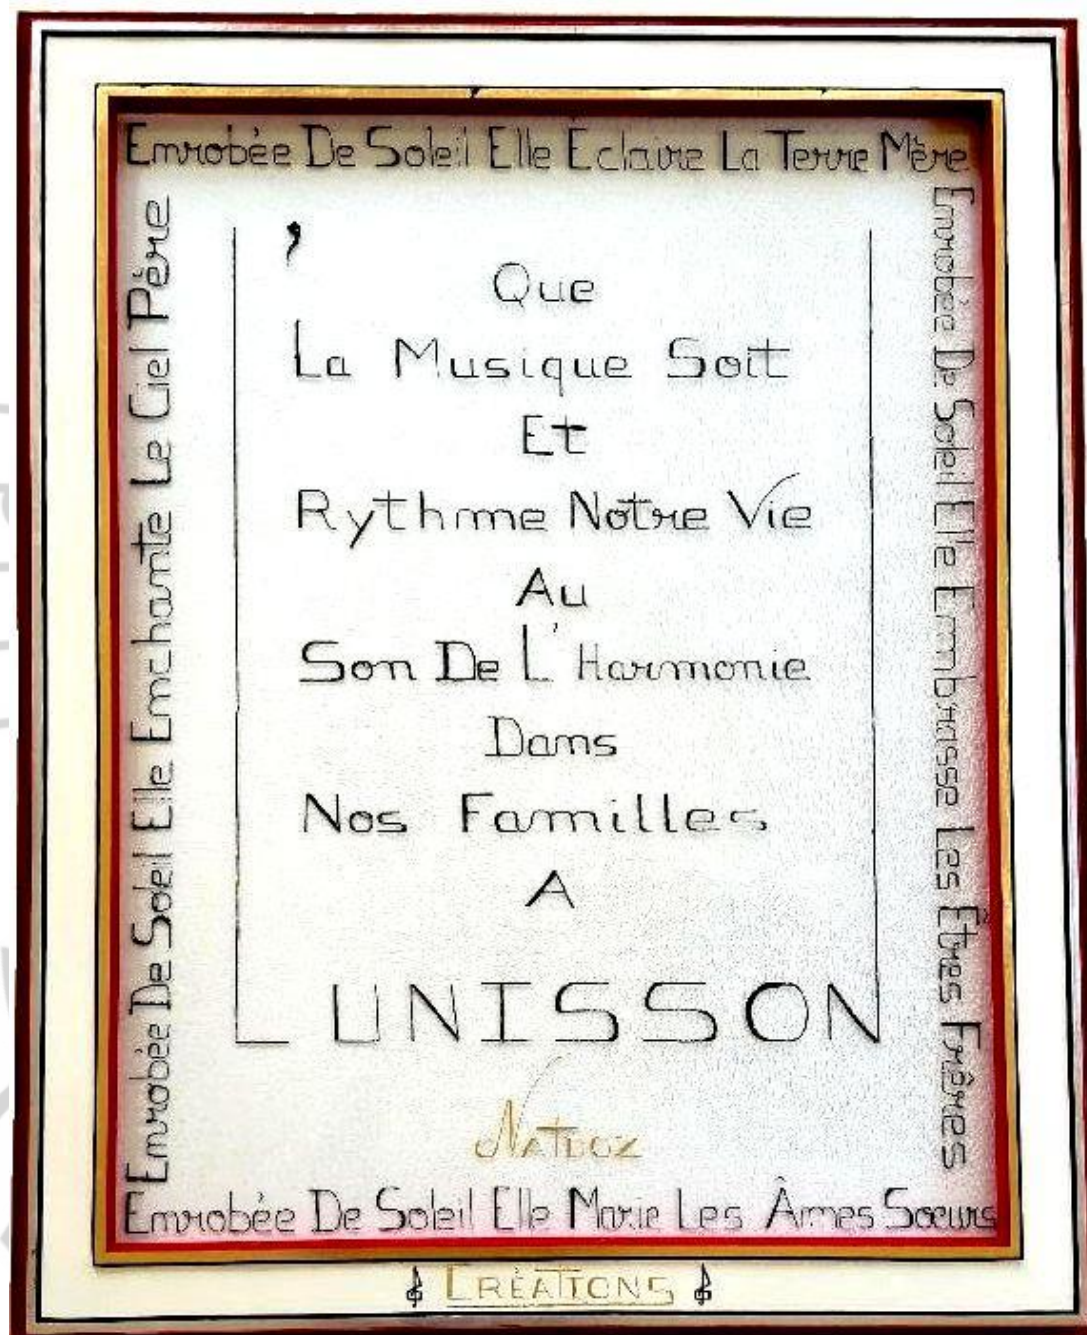 Enrobée De Soleil Elle Éclaire La Terre Mère
Enrobée De Soleil Elle Enchante Le Ciel Père
Enrobée De Soleil Elle Embrasse Les Êtres Frères
,
Que
La Musique Soit
Et
Rythme Notre Vie
Au
Son De L'Harmonie
Dans
Nos Familles
A
L UNISSON
NATDOZ
Enrobée De Soleil Elle Marie Les Âmes Sœurs
CRÉATIONS